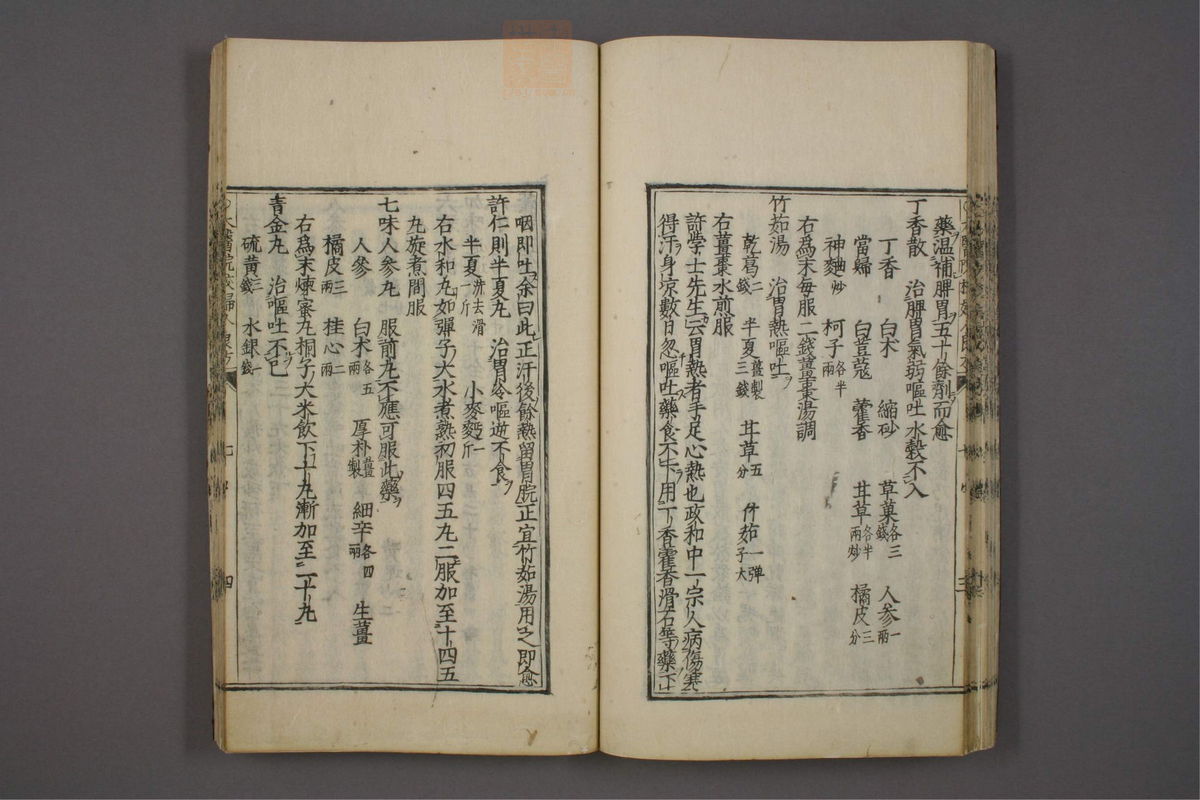 藥温補脾胃五十餘劑而愈
丁香散　治脾胃氣弱嘔吐水穀不入
丁香　白术　縮砂　草菓各三錢　人參一兩
當歸　白荳蔻　藿香　甘草各半兩炒　橘皮三分
神麯炒　柯子各半兩
右為末每服二錢薑棗湯調
竹茹湯　治胃熱嘔吐
乾葛二錢　半夏薑製三錢　甘草五分　竹茹一弾子大
右薑棗水煎服
許學士先生云胃熱者手足心熱也政和中一宗人病傷寒
得汗身凉數日忽嘔吐藥食不下用丁香藿香滑石等藥下
咽即吐余曰此正汗後餘熱留胃脘正宜竹茹湯用之即愈
許仁則半夏丸　治胃冷嘔逆不食
半夏洗去滑一斤　小麥麪一斤
右水和丸如彈子大水煮熟初服四五丸二服加至十四五
丸旋煮間服
七味人參丸　服前丸不應可服此藥
人參　白术各五兩　厚朴薑製　細辛各四兩　生薑
橘皮三兩　桂心二兩
右爲末煉蜜丸桐子大米飲下十丸漸加至二十丸
青金丸　治嘔吐不已
硫黄三錢　水銀一錢
太醫院校婦人良方
七
四